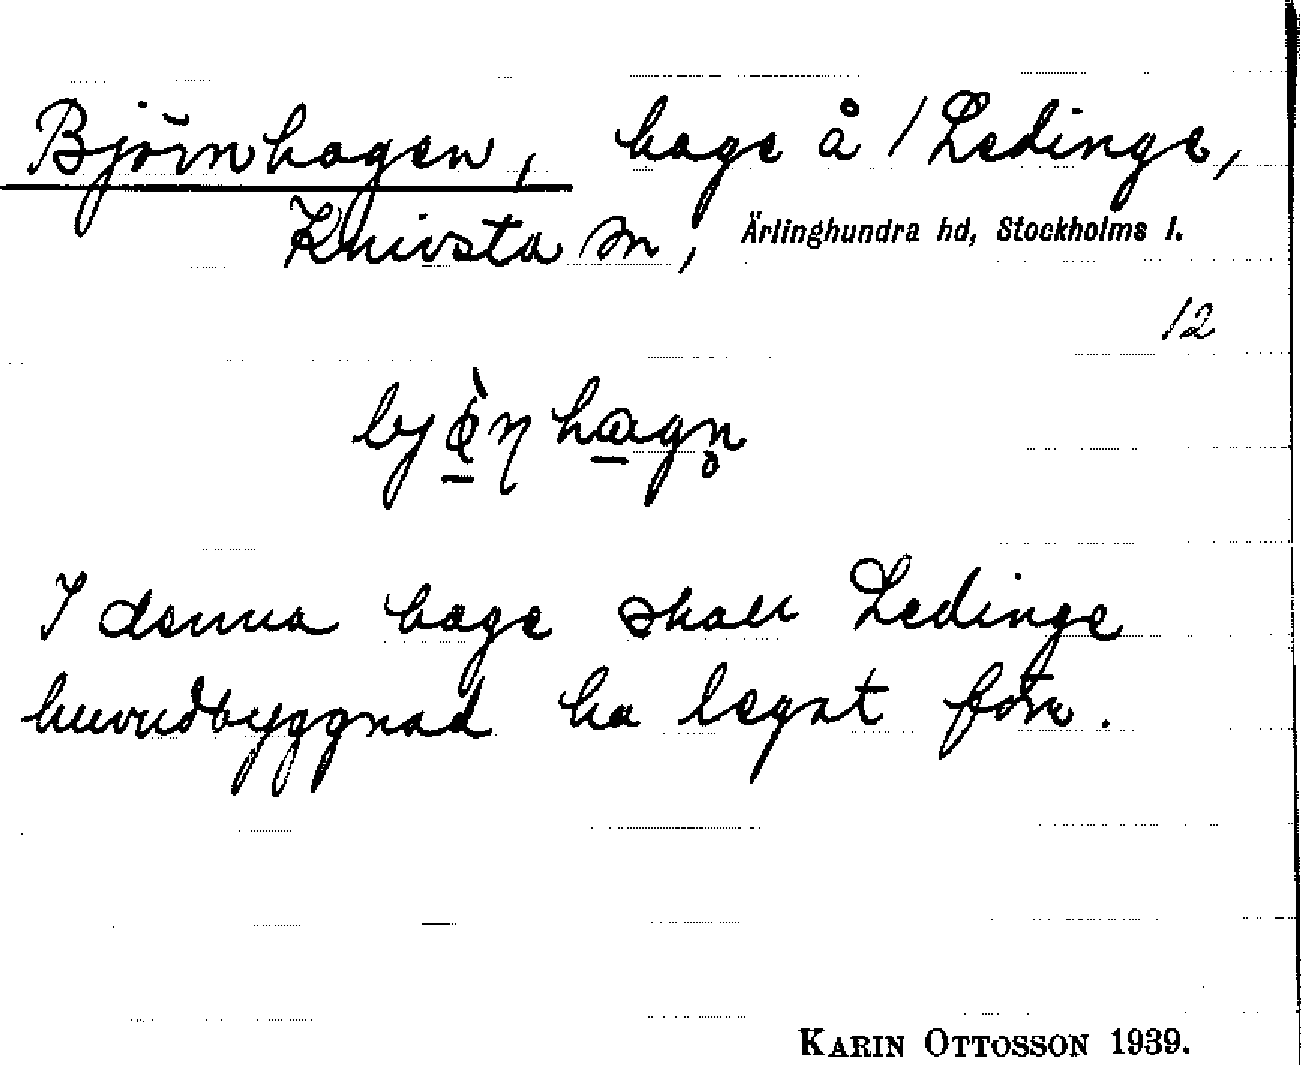 Björnhagen, hage å / Ledinge,
Knivsta sn, Ärlinghundra hd, Stockholms l.
12
I denna hage skall Ledinge
huvudbyggnad ha legat förr.
KARIN OTTOSSON 1939.